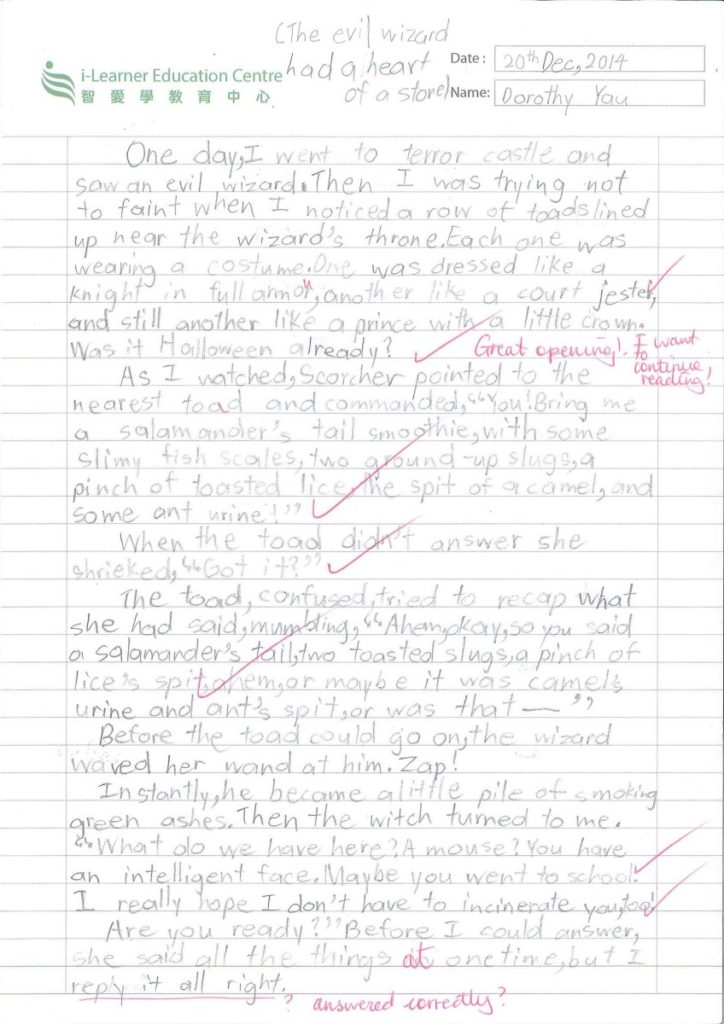 (The evil wizard
had a heart
of a stone)
i-Learner Education Centre
智愛學教育中心
Date: 20th Dec, 2014
Name: Dorothy Yau
One day, I went to terror castle and
saw an evil wizard. Then I was trying not
to faint when I noticed a row of toads lined
up near the wizard's throne. Each one was
wearing a costume. One was dressed like a
knight in full armour, another like a court jester,
and still another like a prince with a little crown.
Was it Halloween already?
Great opening! I want
to
continue
reading!
As I watched, Scorcher pointed to the
nearest toad and commanded, "You! Bring me
a salamander's tail smoothie, with some
slimy fish scales, two ground-up slugs, a
pinch of toasted lice, the spit of a camel, and
some ant urine!"
When the toad didn't answer she
shrieked, "Got it?"
The toad, confused, tried to recap what
she had said, mumbling, "Ahem, okay, so you said
a salamander's tail, two toasted slugs, a pinch of
lice's spit, ahem, or maybe it was camel's
urine and ant's spit, or was that — "
Before the toad could go on, the wizard
waved her wand at him. Zap!
Instantly, he became a little pile of smoking
green ashes. Then the witch turned to me.
"What do we have here? A mouse? You have
an intelligent face. Maybe you went to school.
I really hope I don't have to incinerate you, too!
Are you ready?" Before I could answer,
she said all the things at one time, but I
reply it all right.
? answered correctly?